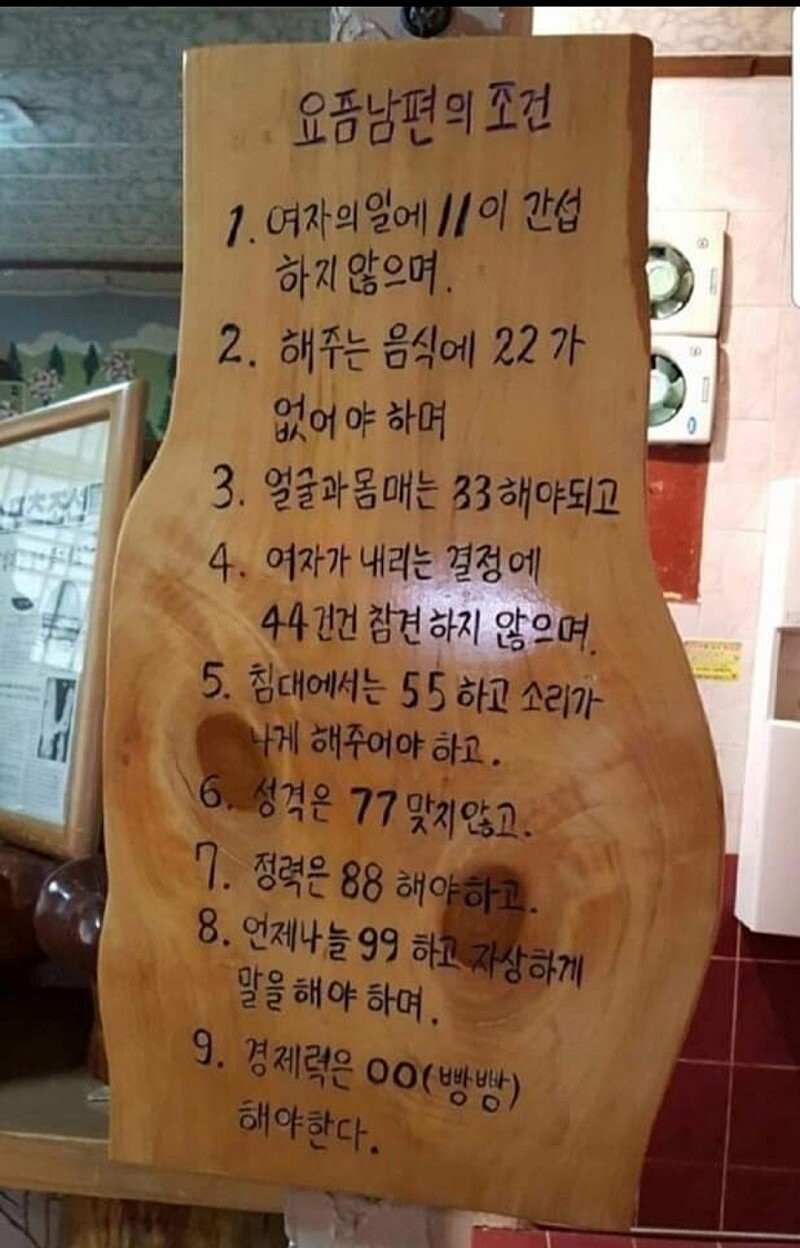 요픔남편의 조건
1. 여자의일에 11이 간섭
하지않으며.
2. 해주는 음식에 22가
없어야 하며
3. 얼굴과몸매는 33해야되고
4. 여자가 내리는 결정에
44건건 참견하지 않으며.
5. 침대에서는 55하고 소리가
나게 해주어야 하고.
6. 성격은 77맞지않고.
7. 정력은 88 해야하고.
8. 언제나늘 99 하고 자상하게
말을해야 하며.
9. 경제력은 00(빵빵)
해야한다.